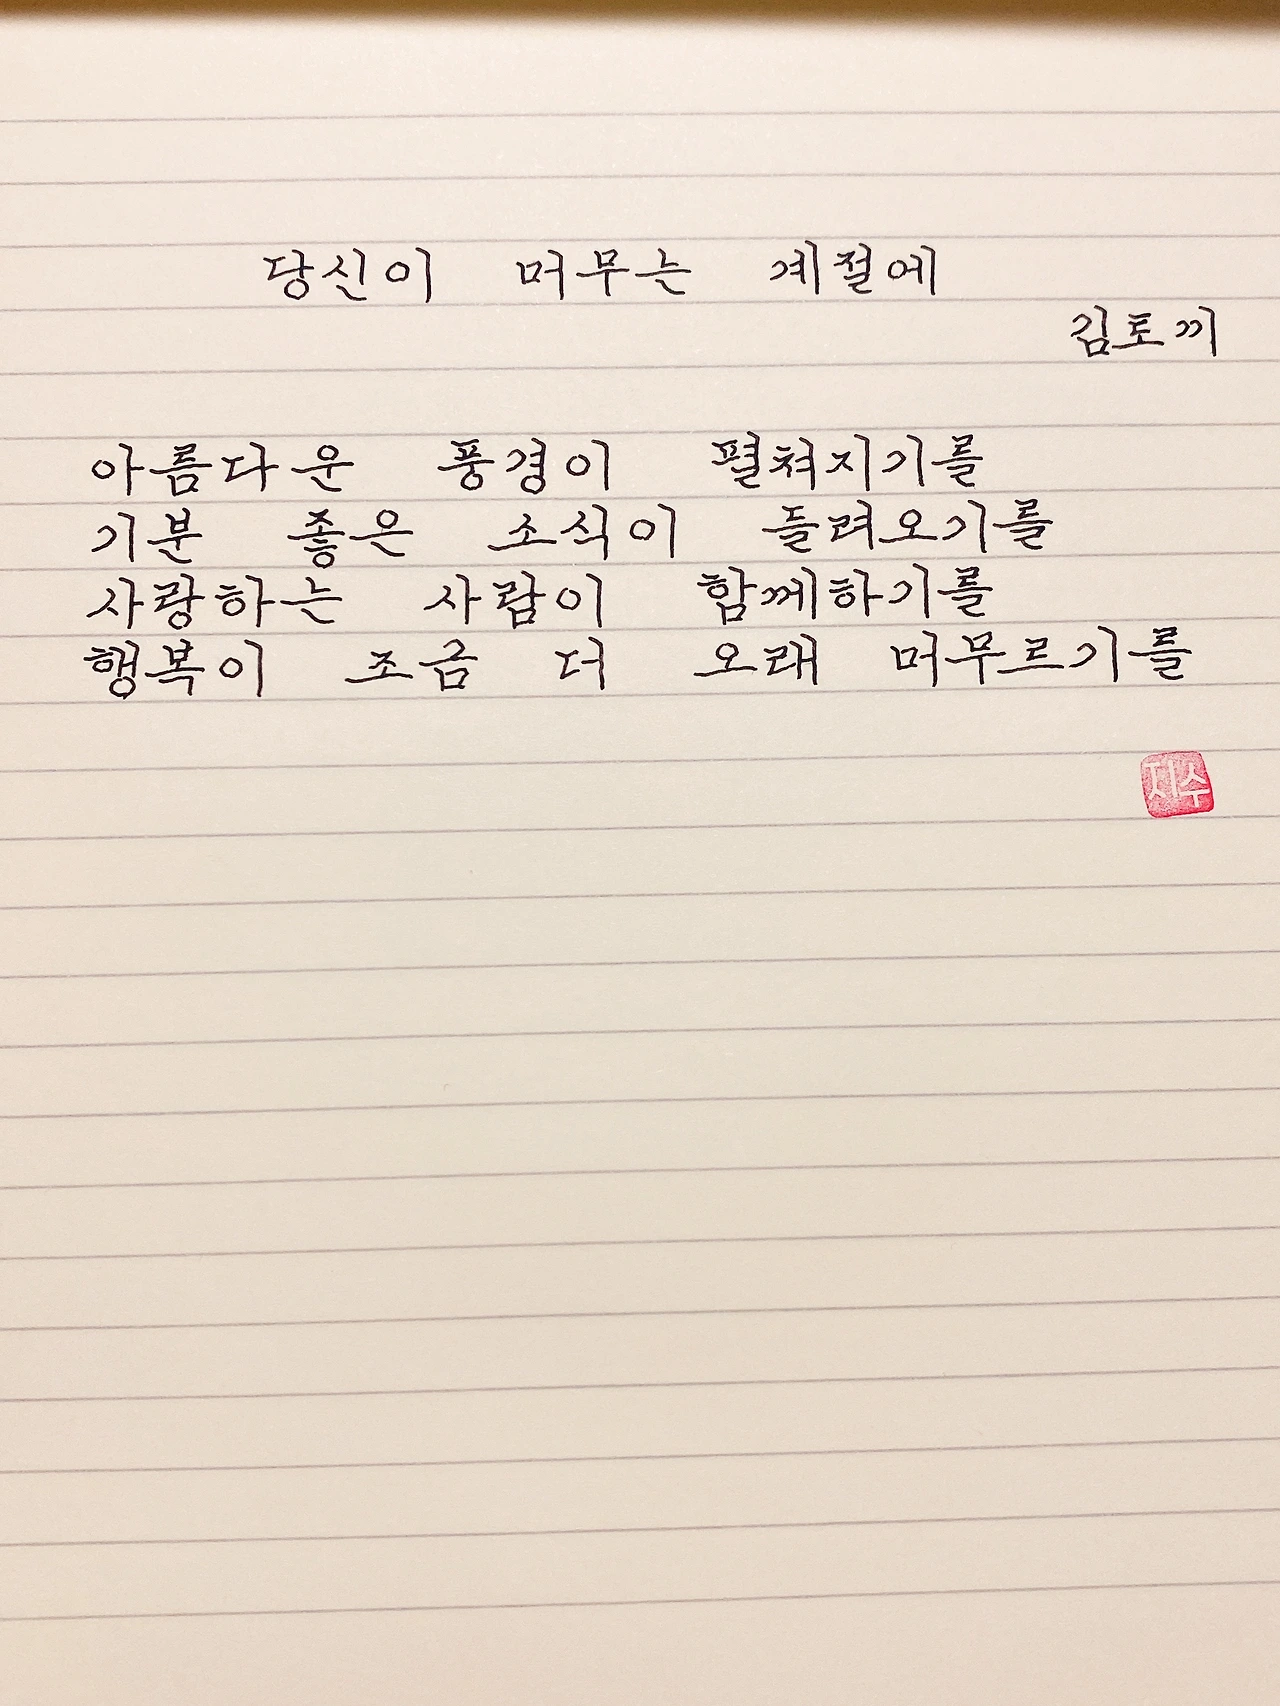 당신이 머무는 계절에
김토끼
아름다운 풍경이 펼쳐지기를
기분 좋은 소식이 들려오기를
사랑하는 사람이 함께하기를
행복이 조금 더 오래 머무르기를
지수